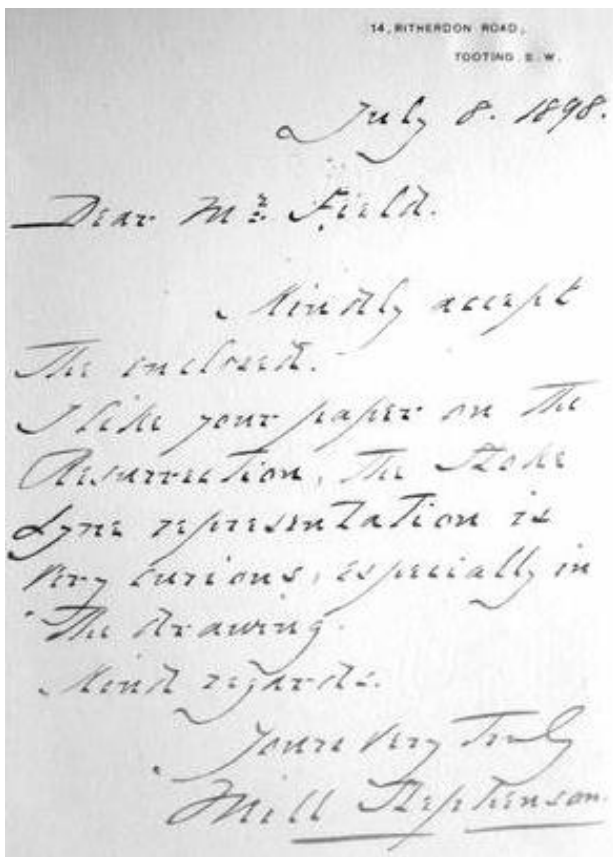 14, RITHERDON ROAD,
TOOTING S.W.
July 8. 1898.
Dear Mr. Field.
Kindly accept
The enclosed.
I like your paper on the
Resurrection, The Stoke
Lyne representation is
very curious, especially in
The drawing.
Kind regards.
Yours very Truly
Mill Stephenson.